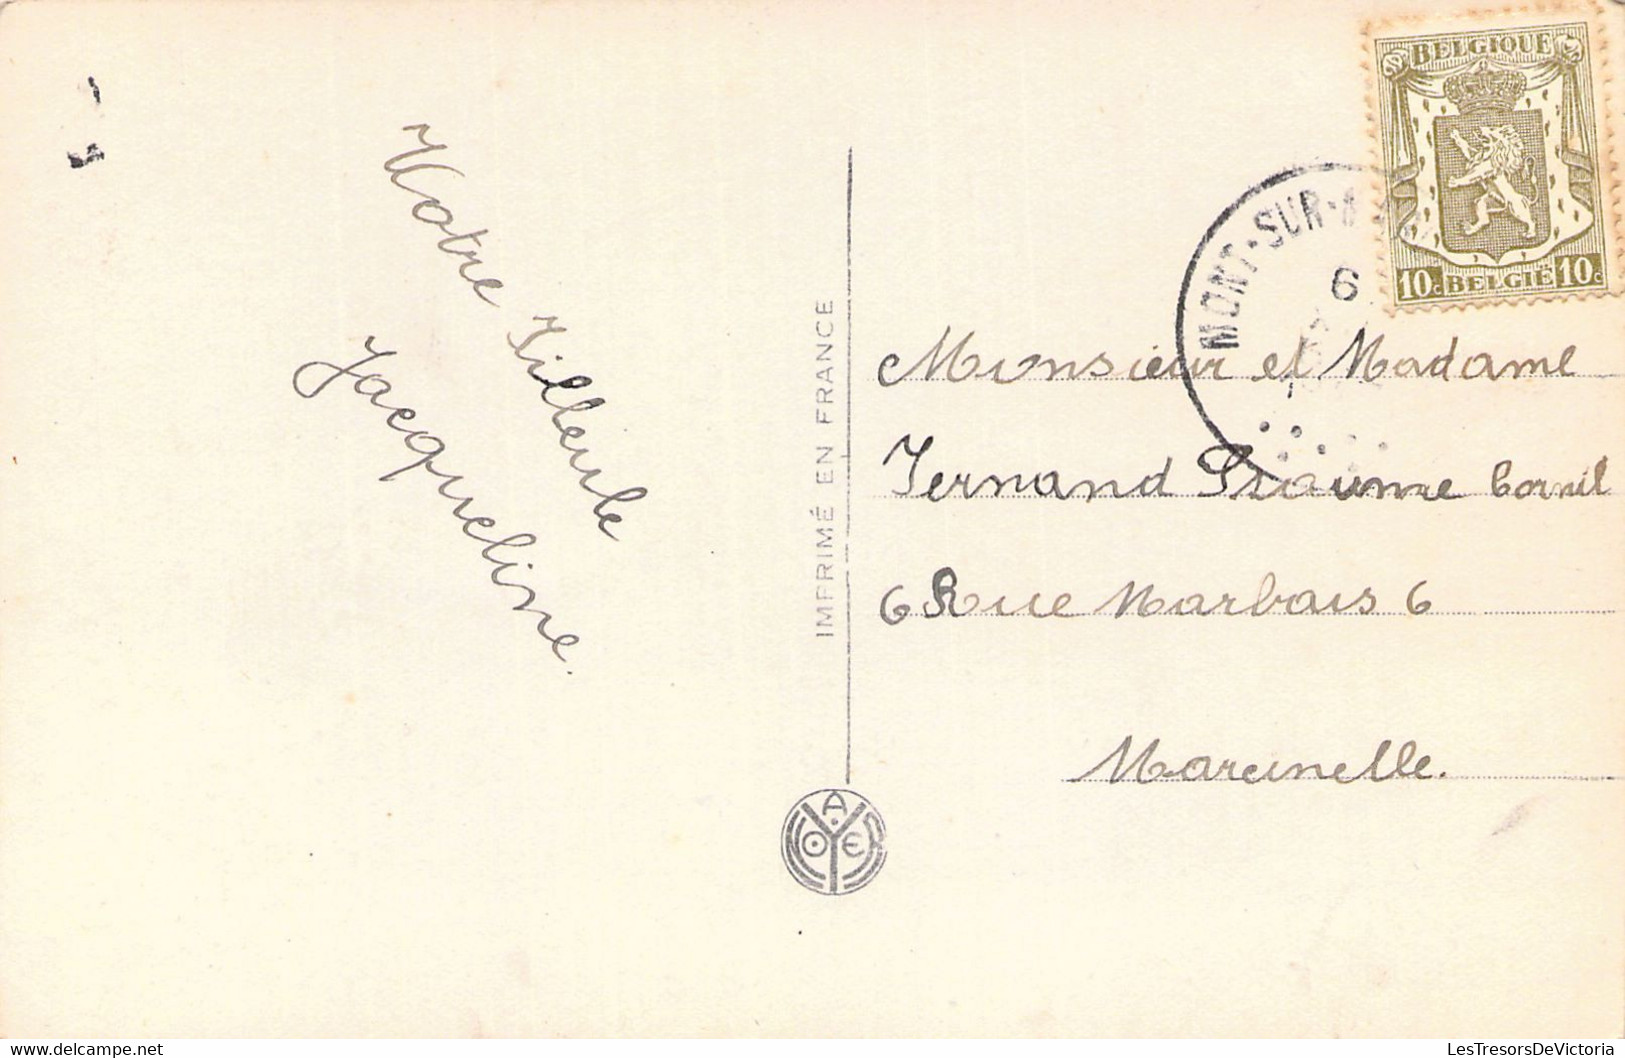 Votre Filleule
Jacqueline.
IMPRIMÉ EN FRANCE
BELGIQUE
10c BELGIË 10c
MONT-SUR-
6
Monsieur et Madame
Fernand Cornil
6 Rue Marbais 6
Marcinelle.
LesTresorsDeVictoria